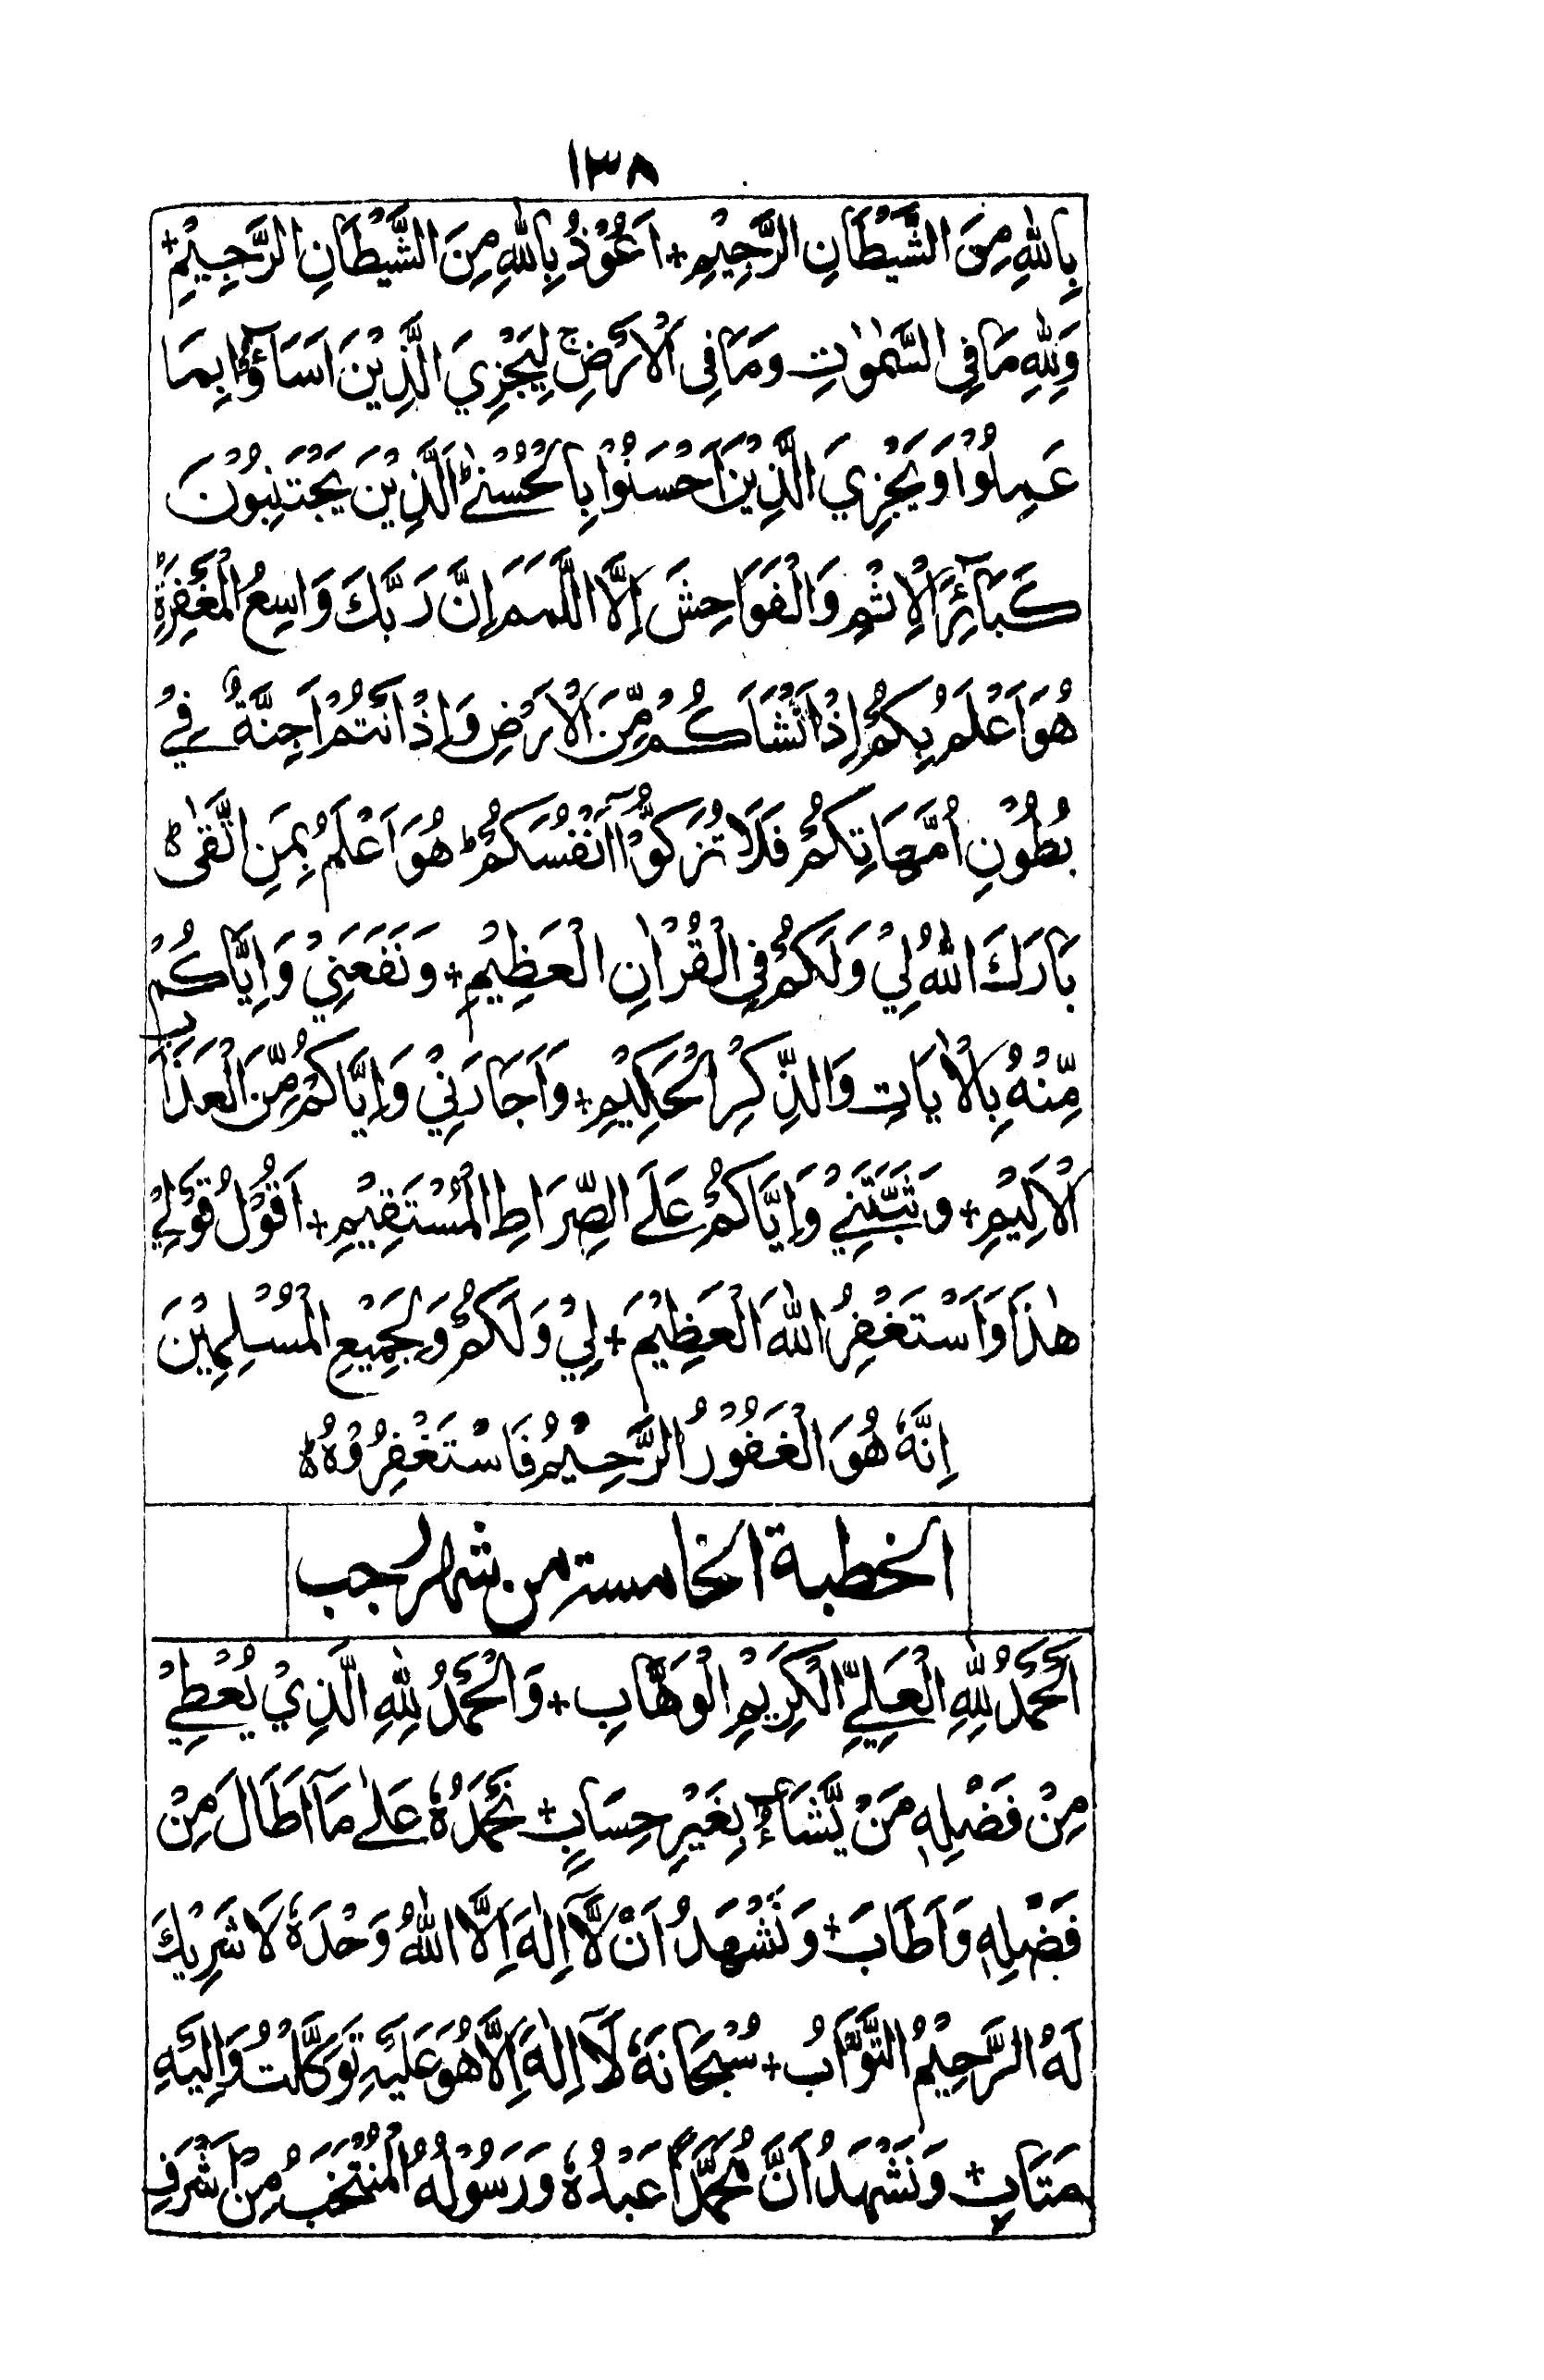 ١٣٨
بِاللّٰهِ مِنَ الشَّيْطَانِ الرَّجِيْمِ + اَعُوْذُ بِاللّٰهِ مِنَ الشَّيْطَانِ الرَّجِيْمِ +
وَلِلّٰهِ مَا فِي السَّمٰوٰتِ وَمَا فِي الْاَرْضِ ج لِيَجْزِيَ الَّذِيْنَ اَسَآؤُا بِمَا
عَمِلُوْا وَيَجْزِيَ الَّذِيْنَ اَحْسَنُوْا بِالْحُسْنٰى ط اَلَّذِيْنَ يَجْتَنِبُوْنَ
كَبَآئِرَ الْاِثْمِ وَالْفَوَاحِشَ اِلَّا اللَّمَمَ اِنَّ رَبَّكَ وَاسِعُ الْمَغْفِرَةِ ط
هُوَ اَعْلَمُ بِكُمْ اِذْ اَنْشَاَكُمْ مِّنَ الْاَرْضِ وَاِذْ اَنْتُمْ اَجِنَّةٌ فِيْ
بُطُوْنِ اُمَّهَاتِكُمْ فَلَا تُزَكُّوْٓا اَنْفُسَكُمْ ط هُوَ اَعْلَمُ بِمَنِ اتَّقٰى ط
بَارَكَ اللّٰهُ لِيْ وَلَكُمْ فِي الْقُرْاٰنِ الْعَظِيْمِ + وَنَفَعَنِيْ وَاِيَّاكُمْ
مِّنْهُ بِالْاٰيَاتِ وَالذِّكْرِ الْحَكِيْمِ + وَاَجَارَنِيْ وَاِيَّاكُمْ مِّنَ الْعَذَابِ
الْاَلِيْمِ + وَثَبَّتَنِيْ وَاِيَّاكُمْ عَلَى الصِّرَاطِ الْمُسْتَقِيْمِ + اَقُوْلُ قَوْلِيْ
هٰذَا وَاَسْتَغْفِرُ اللّٰهَ الْعَظِيْمَ + لِيْ وَلَكُمْ وَلِجَمِيْعِ الْمُسْلِمِيْنَ
اِنَّهٗ هُوَ الْغَفُوْرُ الرَّحِيْمُ فَاسْتَغْفِرُوْهُ ط
الخطبة الخامسة من شهر رجب
اَلْحَمْدُ لِلّٰهِ الْعَلِيِّ الْكَرِيْمِ الْوَهَّابِ + وَالْحَمْدُ لِلّٰهِ الَّذِيْ يُعْطِيْ
مِنْ فَضْلِهٖ مَنْ يَّشَآءُ بِغَيْرِ حِسَابٍ + نَحْمَدُهٗ عَلٰى مَآ اَطَالَ مِنْ
فَضْلِهٖ وَاَطَابَ + وَنَشْهَدُ اَنْ لَّآ اِلٰهَ اِلَّا اللّٰهُ وَحْدَهٗ لَا شَرِيْكَ
لَهُ الرَّحِيْمُ التَّوَّابُ + سُبْحَانَهٗ لَآ اِلٰهَ اِلَّا هُوَ عَلَيْهِ تَوَكَّلْتُ وَاِلَيْهِ
مَتَابِ + وَنَشْهَدُ اَنَّ مُحَمَّدًا عَبْدُهٗ وَرَسُوْلُهُ الْمُنْتَخَبُ مِنْ اَشْرَفِ